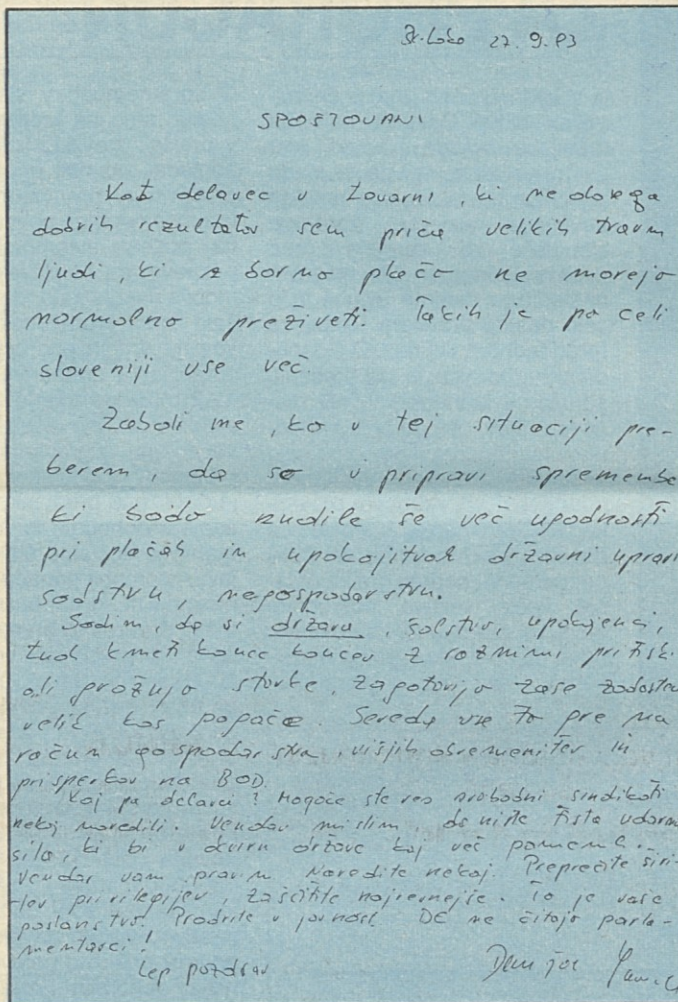 Šk. Loka 27. 9. 93
SPOŠTOVANI
Kot delavec v tovarni, ki ne dosega
dobrih rezultatov sem priča velikih travm
ljudi, ki z borno plačo ne morejo
normalno preživeti. Takih je po celi
sloveniji vse več.
Zaboli me, ko v tej situaciji pre-
berem, da so v pripravi spremembe
ki bodo nudile še več ugodnosti
pri plačah in upokojitvah državni upravi
sodstvu, negospodarstvu.
Sodim, da si država, šolstvo, upokojenci,
tudi kmeti konec koncev z raznimi pritiski
ali grožnjo stavke, zagotovijo zase zadosten
velik kos pogače. Seveda vse to gre na
račun gospodarstva, višjih obremenitev in
prispevkov na BOD.
Kaj pa delavci? Mogoče ste res svobodni sindikati
nekaj naredili. Vendar mislim, da niste tista udarna
sila, ki bi v okviru države kaj več pomenila.
Vendar vam pravim Naredite nekaj. Preprečite širi-
tev privilegijev, zaščitite najrevnejše. To je vaše
poslanstvo. Prodrite v javnost. DE ne čitajo parla-
mentarci!
Lep pozdrav